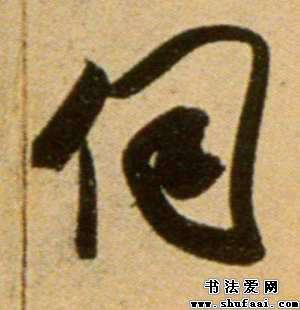 伺
书法爱网
www.shufaai.com